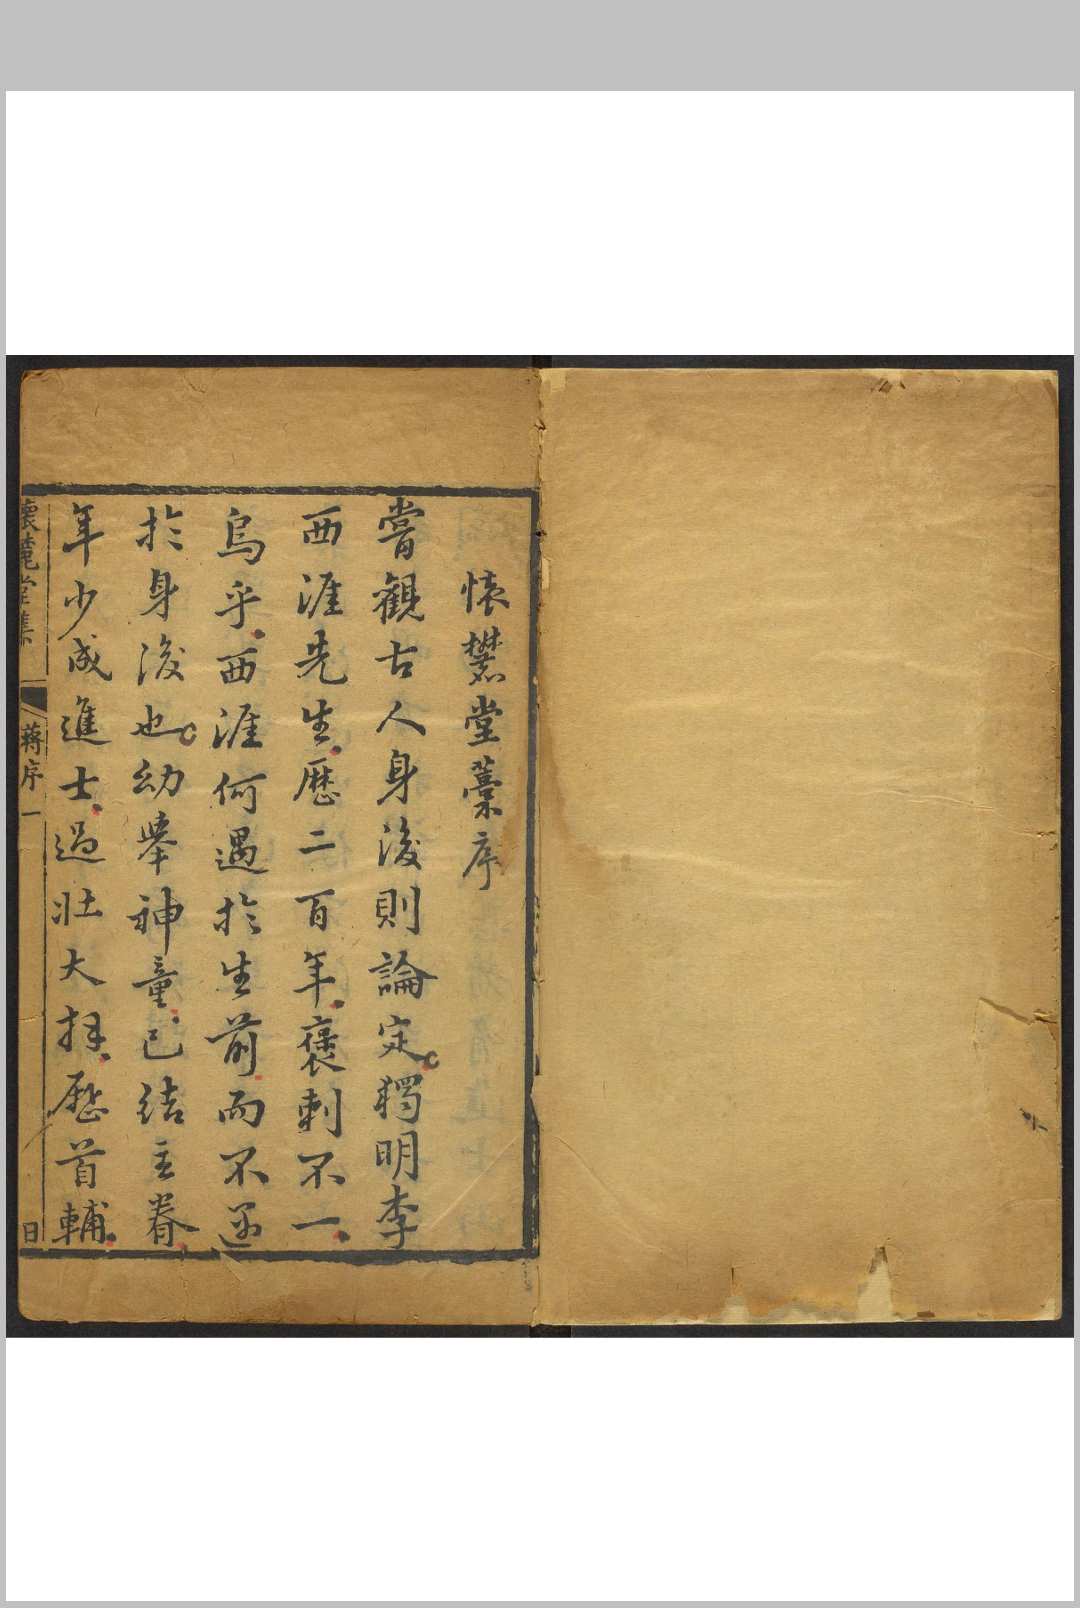 懷麓堂藁序
嘗觀古人身後則論定獨明李
西涯先生歷二百年褒刺不一
烏乎西涯何遇於生前而不遇
於身後也幼舉神童已結主眷
年少成進士過壯大拜歷首輔
懷麓堂集
蔣序
一
日